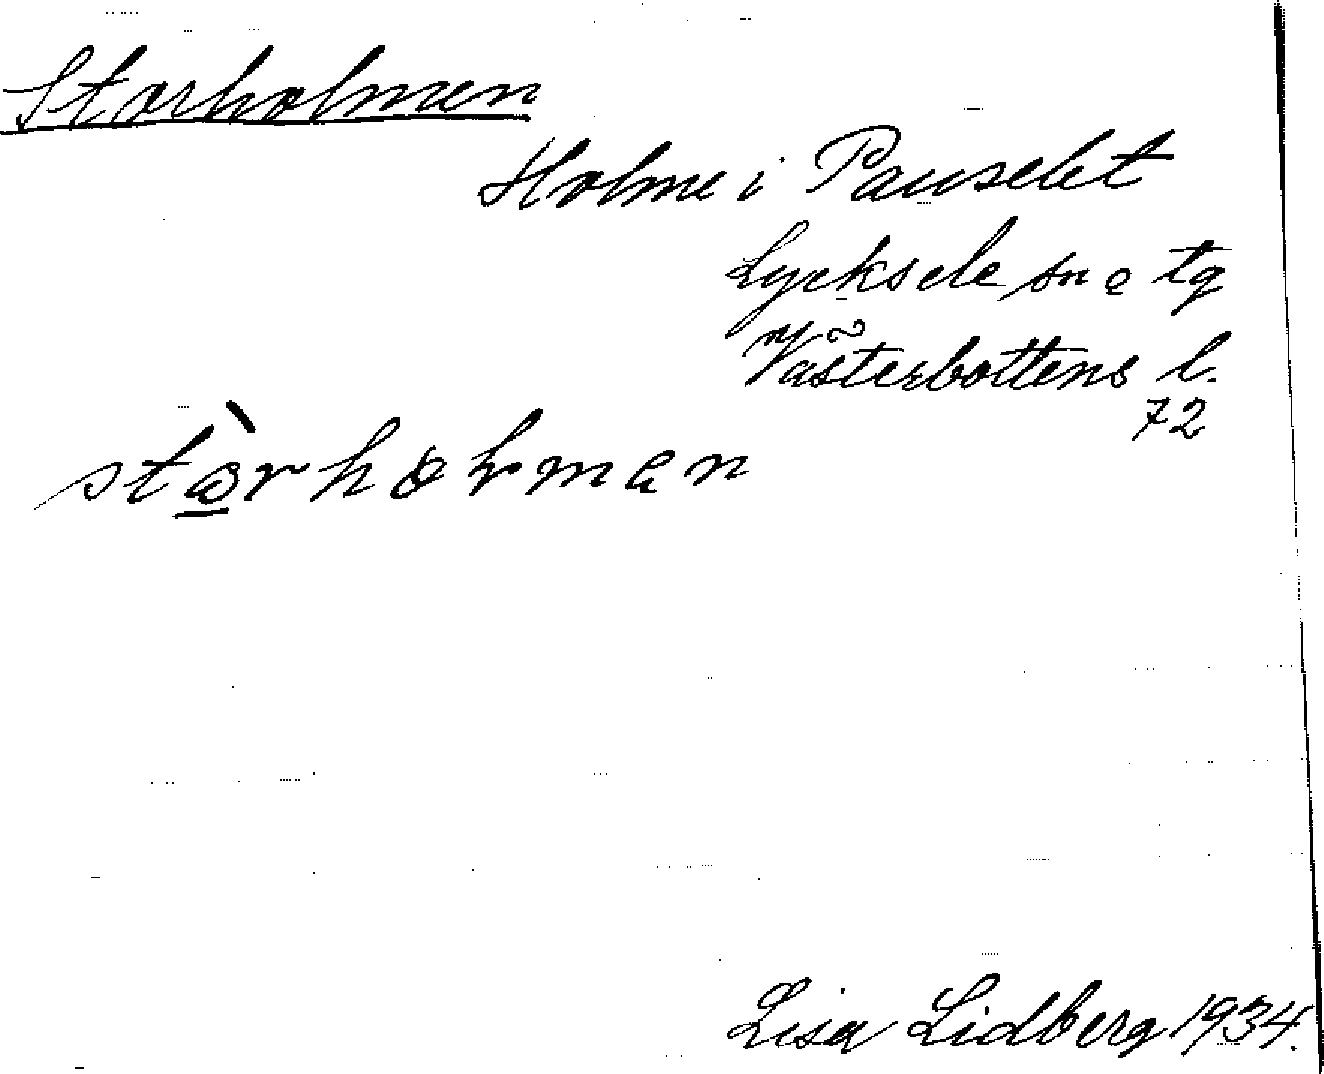 Storholmen
Holme i Pauselet
Lycksele sn o tg
Västerbottens l.
72
Lisa Lidberg 1934.